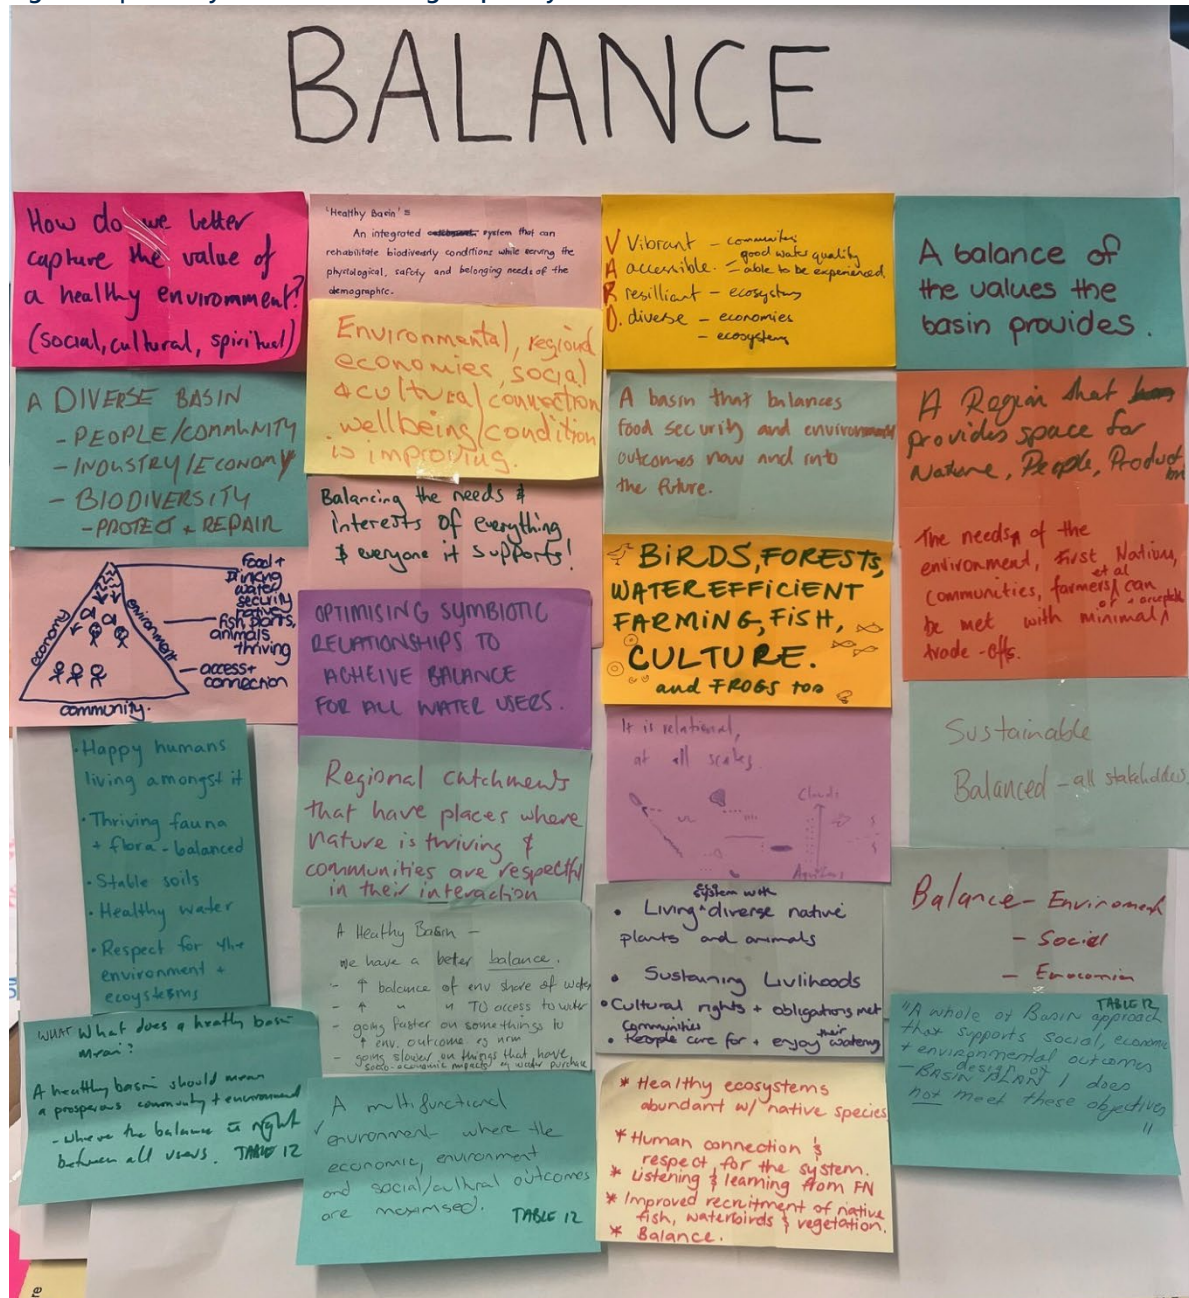 BALANCE
How do we better
capture the value of
a healthy enviromment?
(social, cultural, spiritual)
A DIVERSE BASIN
- PEOPLE/COMMUNITY
- INDUSTRY/ECONOMY
- BIODIVERSITY
- PROTECT + REPAIR
food +
drinking
water
security
native
fish plants,
animals
thriving
access +
connection
economy
environment
community.
• Happy humans
living amongst it
• Thriving fauna
+ flora - balanced
• Stable soils
• Healthy water
• Respect for the
environment +
ecoystesms
WHAT What does a heathy basin
mean?
A healthy basin should mean
a prosperous community + environment
- where the balance is right
between all users. TABLE 12
'Healthy Basin' =
An integrated system that can
rehabilitate biodiversity conditions while serving the
physiological, safety and belonging needs of the
demographic.
Environmental, regional
economies, social
& cultural connection
wellbeing/condition
is improving.
Balancing the needs &
interests of everything
& everyone it supports!
OPTIMISING SYMBIOTIC
RELATIONSHIPS TO
ACHEIVE BALANCE
FOR ALL WATER USERS.
Regional catchments
that have places where
nature is thriving &
communities are respectful
in their interaction
A Heathy Basin -
we have a beter balance.
- ↑ balance of env share of water
- ↑ " " TO access to water
- going faster on some things to
↑ env. outcome eg nrm
- going slower on things that have
socio-economic impacts eg water purchase
A multifunctional
environment where the
economic, environment
and social/cultural outcomes
are maximised. TABLE 12
V Vibrant - communities
good water quality
A accessible. - able to be experienced
R resilliant - ecosystems
D. diverse - economies
- ecosystems
A basin that balances
food security and environment
outcomes now and into
the future.
BIRDS, FORESTS,
WATER EFFICIENT
FARMING, FISH,
CULTURE.
and FROGS too
It is relational,
at all scales.
Clouds
Aquifers
system with
• Living + diverse native
plants and animals
• Sustaining Livlihoods
• Cultural rights + obligations met
Communities
• People care for + enjoy their waterways
* Healthy ecosystems
abundant w/ native species
* Human connection &
respect for the system.
* Listening & learning from FN
* Improved recruitment of native
fish, waterbirds & vegetation.
* Balance.
A balance of
the values the
basin provides.
A Region that
provides space for
Nature, People, Production
The needs of the
environment, First Nations,
communities, farmers et al can
be met with minimal or + acceptable
trade-offs.
Sustainable
Balanced - all stakeholders
Balance - Enviroment
- Social
- Enocomic
TABLE 12
"A whole of Basin approach
that supports social, economic
+ environmental outcomes
- design of BASIN PLAN 1 does
not meet these objectives
"